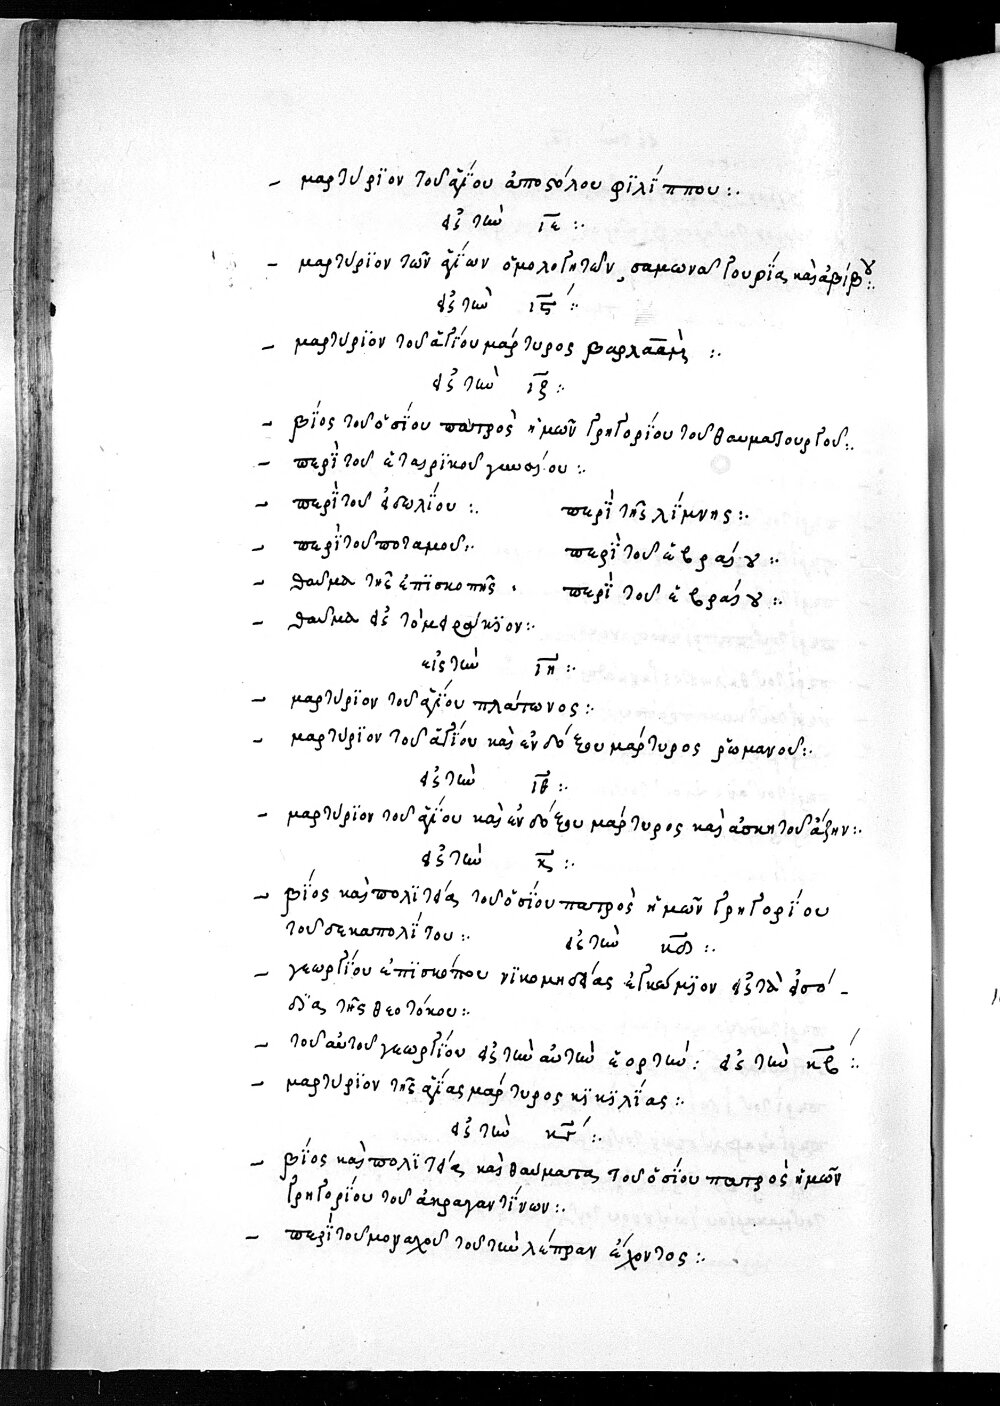 – μαρτύρϊον τοῦ ἁγίου ἀποστόλου φϊλΐππου :.
εἰς τὴν ιε :.
– μαρτύρϊον τῶν ἁγίων ὁμολογητῶν, σαμωνᾶ γουρΐα καὶ ἀβίβου :.
εἰς τὴν ις :.
– μαρτύρϊον τοῦ ἁγίου μάρτυρος βαρλαὰμ :.
εἰς τὴν ιζ :.
– βίος τοῦ ὁσΐου πατρὸς ἡμῶν γρηγορΐου τοῦ θαυματουργοῦ :.
– περὶ τοῦ ἑταιρϊκοῦ γυναίου :.
– περὶ τοῦ εἰδωλΐου :. περὶ τῆς λΐμνης :.
– περὶ τοῦ ποταμοῦ :. περὶ τοῦ ἑβραίου :.
– θαῦμα τῆς ἐπϊσκοπῆς . περὶ τοῦ ἑβραίου :.
– θαῦμα εἰς τὸ μειράκϊον :.
εἰς τὴν ιη :.
– μαρτύρϊον τοῦ ἁγίου πλάτωνος :.
– μαρτύρϊον τοῦ ἁγΐου καὶ ἐνδόξου μάρτυρος ῥωμανοῦ :.
εἰς τὴν ιθ :.
– μαρτύρϊον τοῦ ἁγίου καὶ ἐνδόξου μάρτυρος καὶ ἀσκητοῦ ἄζην :.
εἰς τὴν κ :.
– βίος καὶ πολϊτεία τοῦ ὁσΐου πατρὸς ἡμῶν γρηγορΐου
τοῦ δεκαπολΐτου :. εἰς τὴν κα :.
– γεωργΐου ἐπϊσκόπου νϊκομηδείας ἐγκώμϊον εἰς τὰ εἰσό-
δϊα τῆς θεοτόκου :.
– τοῦ αὐτοῦ γεωργΐου εἰς τὴν αὐτὴν ἑορτήν : εἰς τὴν κβ :.
– μαρτύρϊον τῆς ἁγίας μάρτυρος κϊκϊλΐας :.
εἰς τὴν κγ :.
– βίος καὶ πολϊτεία καὶ θαύματα τοῦ ὁσΐου πατρὸς ἡμῶν
γρηγορΐου τοῦ ἀκραγαντΐνων :.
– περὶ τοῦ μοναχοῦ τοῦ τὴν λέπραν ἔχοντος :.